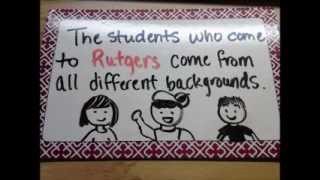 The students who come
to Rutgers come from
all different backgrounds.